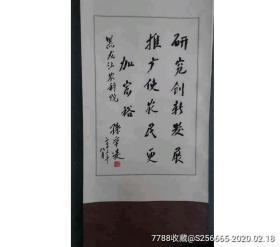 研究创新发展
推广使农民更
加富裕
黑龙江农科院
孙宇凌
八月
7788收藏@S256665-2020.02.18